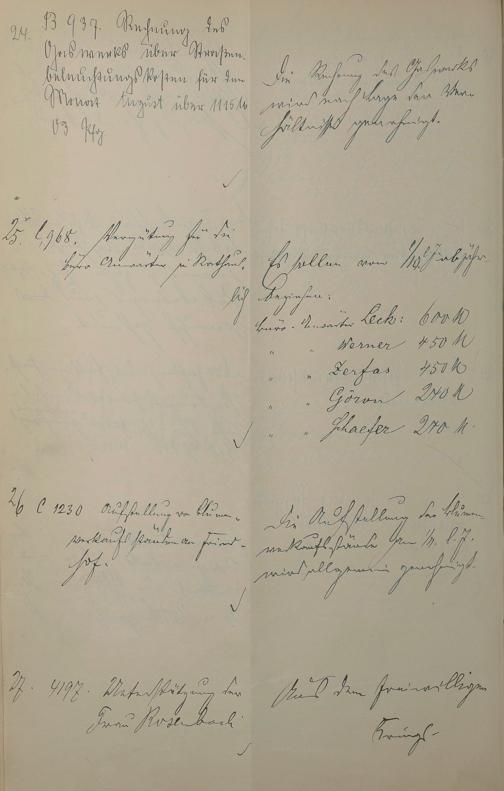 24. B 937. Rechnung des
Gaswerks über Straßen-
beleuchtungskosten für den
Monat August über 1115 M
03 Pfg
Die Rechnung des Gaswerks
wird nach Lage der Ver-
hältnisse genehmigt.
25. C 968. Vergütung für die
Büro Anwärter im Rathaus.
Es sollen vom 1/10 jährlich
beziehen:
Büro-Anwärter Leck: 600 M
" " Werner 450 M
" " Zerfas 450 M
" " Göven 240 M
" " Schaefer 240 M.
26 C 1230 Aufstellung von Blumen-
verkaufsständen am Fried-
hof.
Die Aufstellung der Blumen-
verkaufsstände am 1/11. d. J.
wird allgemein genehmigt.
27. 4197. Unterstützung der
Frau Rosenbach
Aus dem freiwilligen
Kriegs-